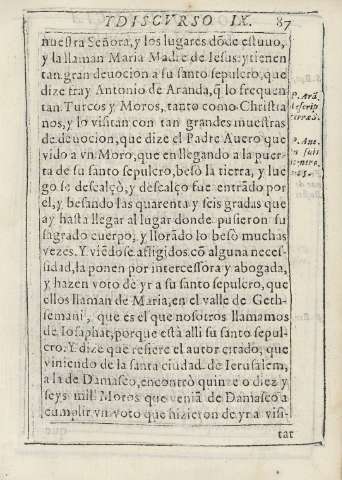 YDISCVRSO IX. 87
nuestra Señora, y los lugares dõde estuuo,
y la llaman Maria Madre de Iesus: y tienen
tan gran deuocion a su santo sepulcro, que
dize fray Antonio de Aranda, q̃ lo frequen
tan Turcos y Moros, tanto como Christia
nos, y lo visitan con tan grandes muestras
de deuocion, que dize el Padre Auero que
vido a vn Moro, que en llegando a la puer-
ta de su santo sepulcro, besò la tierra, y lue
go se descalçò, y descalço fue entrãdo por
el, y besando las quarenta y seis gradas que
ay hasta llegar al lugar donde pusieron su
sagrado cuerpo, y llorãdo lo besò muchas
vezes. Y viẽdose afligidos cõ alguna neces-
sidad, la ponen por intercessora y abogada,
y hazen voto de yr a su santo sepulcro, que
ellos llaman de Maria, en el valle de Geth-
semani, que es el que nosotros llamamos
de Iosaphat, porque està alli su santo sepul-
cro. Y dize que refiere el autor citado, que
viniendo de la santa ciudad de Ierusalem,
a la de Damasco, encontrò quinze o diez y
seys mil Moros que veniã de Damasco a
cumplir vn voto que hizieron de yr a visi-
tar
P. Arã.
descrip
P. Aue.